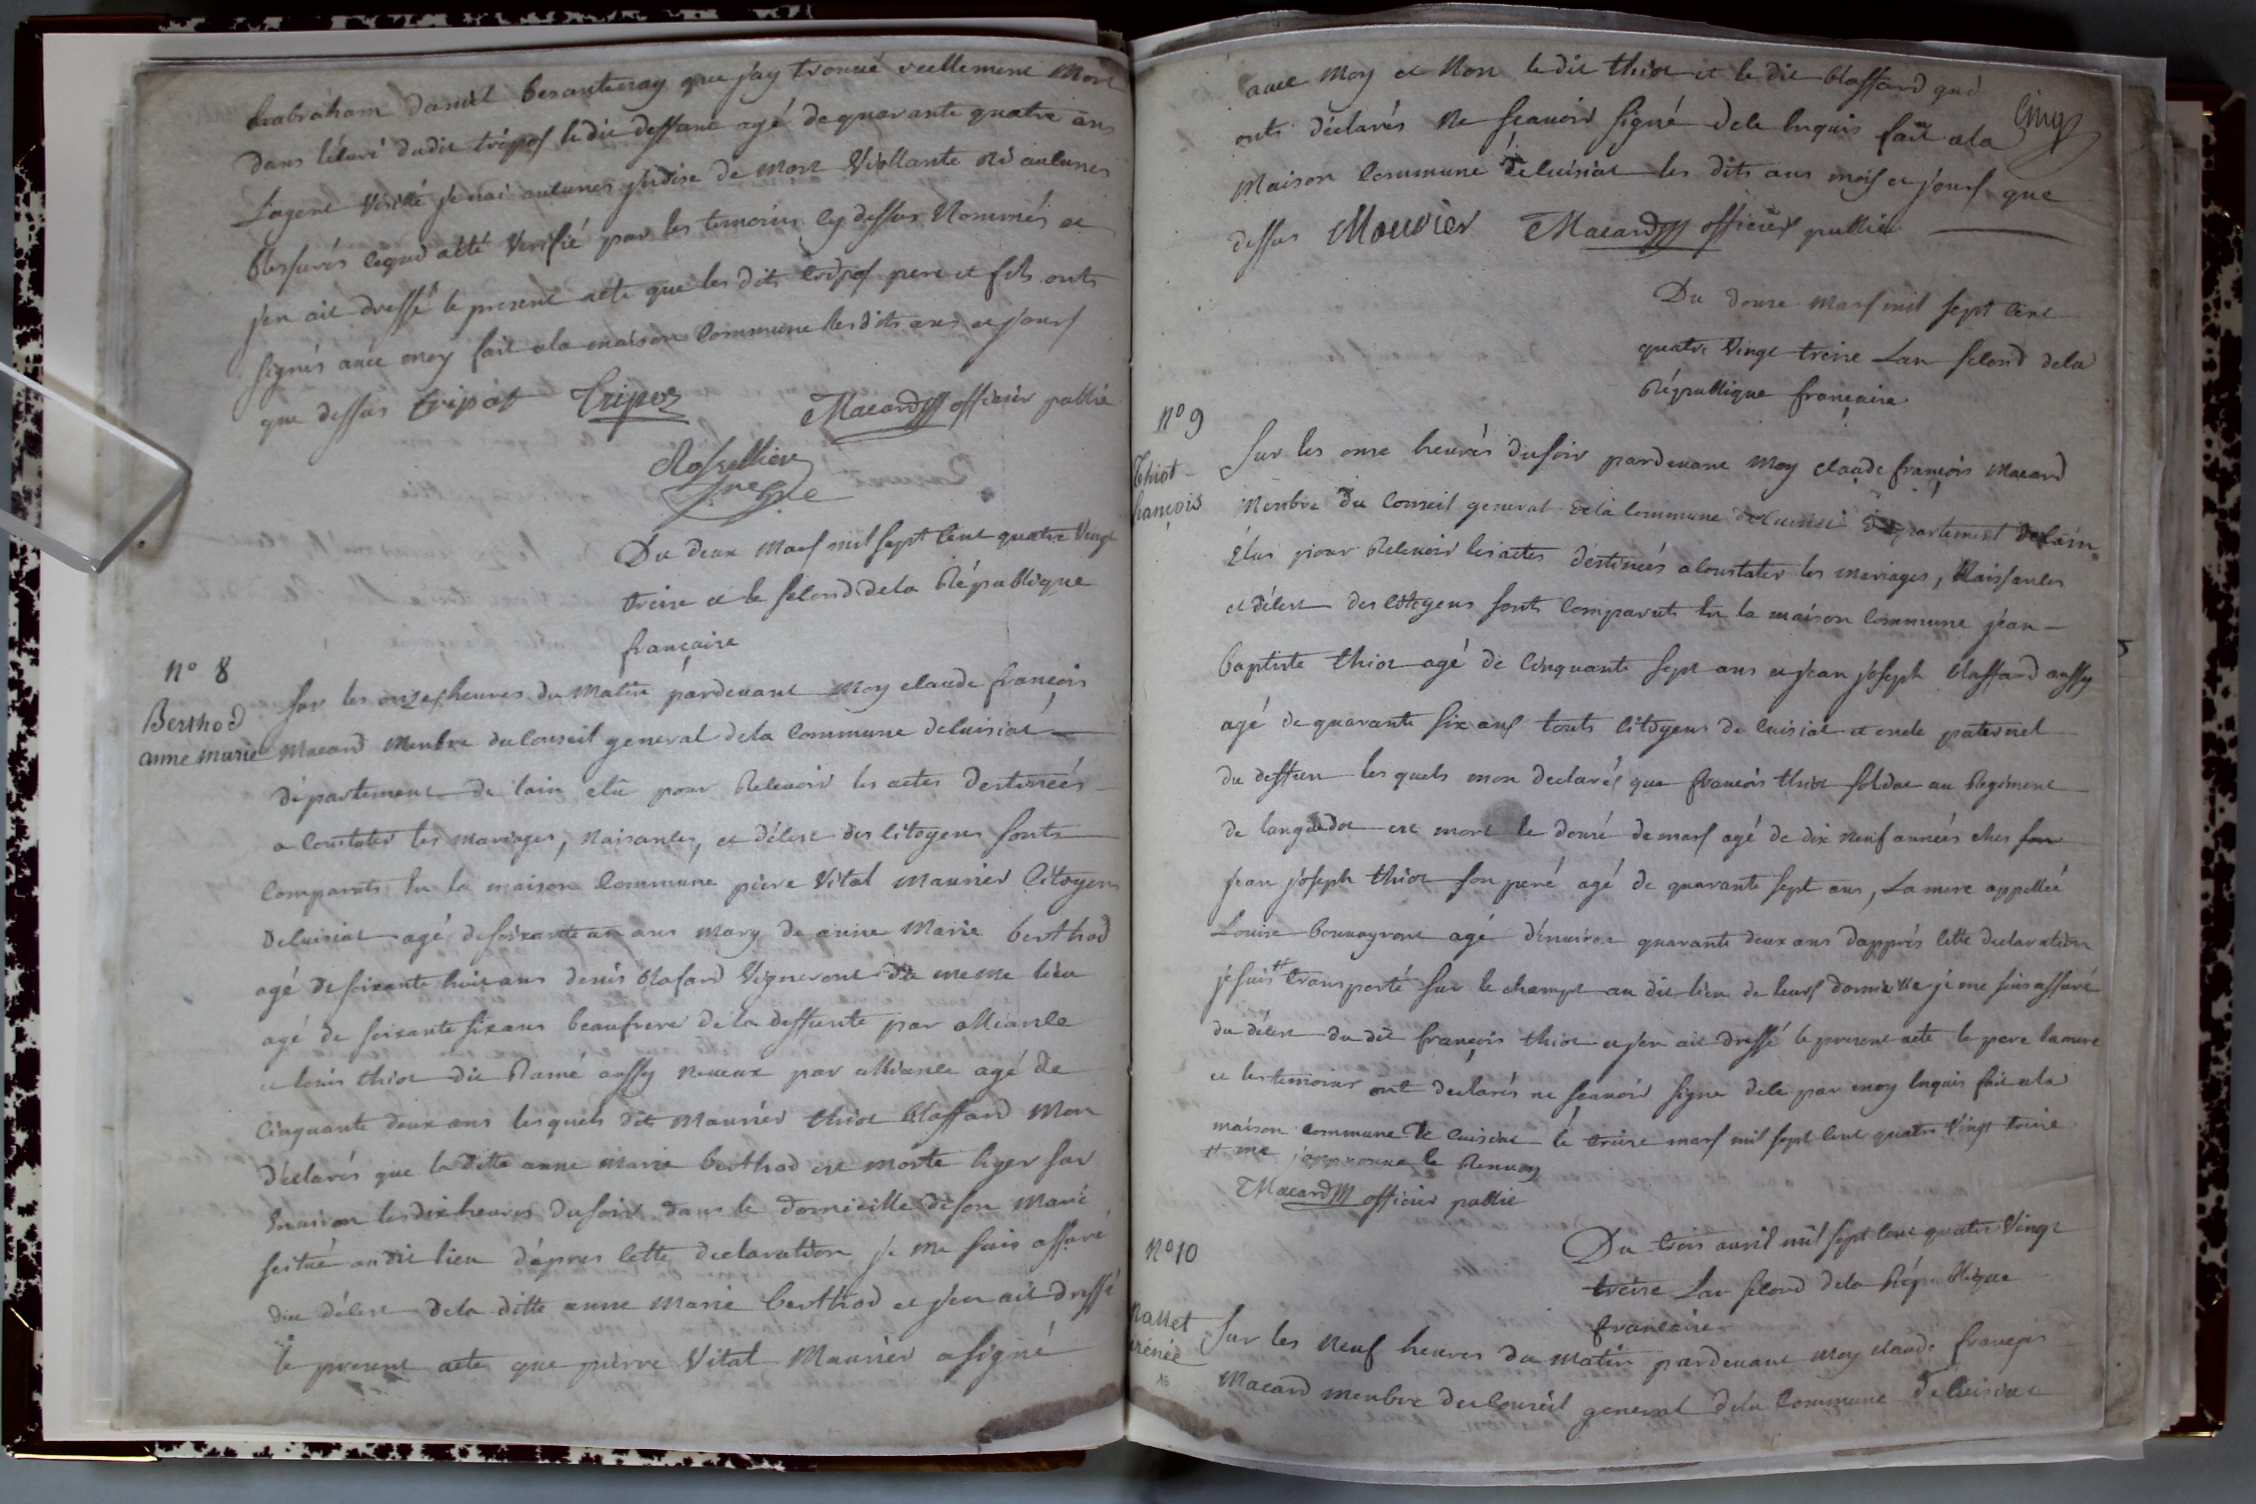 habraham daniel besanteray que j'ay trouvé reellement mort
dans l'écuri dudit tripoz le dit deffunt agé de quarante quatre ans
L'agent verité je n'ai aucunes indice de mort viollante ni aucunes
blessures lequel a été verifié par les temoins cy dessus nommés et
j'en ait dressé le present acte que les dits tripoz pere et fils onts
signés avec moy fait a la maison commune les dits ans et jours
que dessus tripôt Tripoz Macard officier public
Du deux mars mil sept cent quatre vingt
treize et le second de la République
françaire
N° 8
Berthod
anne marie
Sur les onzes heures du matin pardevant moy claude françois
Macard menbre du conseil general de la commune de cuisiat
département de l'ain elû pour recevoir les actes destineés
a constater les mariages, naisances, et décest des citoyens sonts
comparuts en la maison commune piere vital maurier citoyens
de cuisiat agé de soixante un ans mary de anne marie berthod
agé de soixante huit ans denis blasard vigneront du meme lieu
agé de soixante six ans beaufrere de la deffunte par alliance
et louis thiot dit Ramé aussy neveux par alliance agé de
cinquante deux ans lesquels dit maurier thiot blassard mon
déclarés que la ditte anne marie berthod est morte hyer sur
environ les dix heures du soir dans le domicille de son marié
scitué audit lieu d'apres cette declaration je me suis assuré
du décest de la ditte anne marie berthod et j'en ait dressé
le present acte que pierre vital maurier a signé
avec moy et non le dit thiot et le dit blassard qué
onts déclarés ne scavoir signé de ce enquis fait a la
Cinq
maison commune de cuisiat les dits ans mois et jours que
dessus Mouvier Macard officier public
Du douze mars mil sept cent
quatre vingt treize Lan second de la
République françaire
N° 9
Thiot
françois
Sur les onze heures du soir pardevant moy claude françois macard
menbre du conseil general de la commune de cuisiat département de l'ain
élus pour recevoir les actes destineés a constater les mariages, naissances
et décest des citoyens sonts comparuts en la maison commune jéan
baptiste thiot agé de cinquante sept ans et jean joseph blassard aussy
agé de quarante six ans touts citoyens de cuisiat et oncle paternel
du deffun les quels mon declarés que françois thiot soldat au regiment
de languedot est mort le douze de mars agé de dix neuf années ches son
jean joseph thiot son peré agé de quarante sept ans, La mere appelleé
Louise agé d'environ quarante deux ans d'apprés cette declaration
je suis # transporté sur le champt au dit lieu de leurs domicille je me suis assuré
du décest du dit françois thiot et j'en ait dressé le present acte le pere la mere
et les temoins ont declarés ne scavoir signe de ce par moy enquis fait a la
maison commune de cuisiat le treize mars mil sept cent quatre vingt treize
# me j'approuve le renvoy
Macard officier public
Du trois avril mil sept cent quatre vingt
treize Lan second de la République
francaire
N° 10
Sur les neuf heures du matin pardevant moy claude françois
Macard menbre du conseil general de la commune de cuisiat